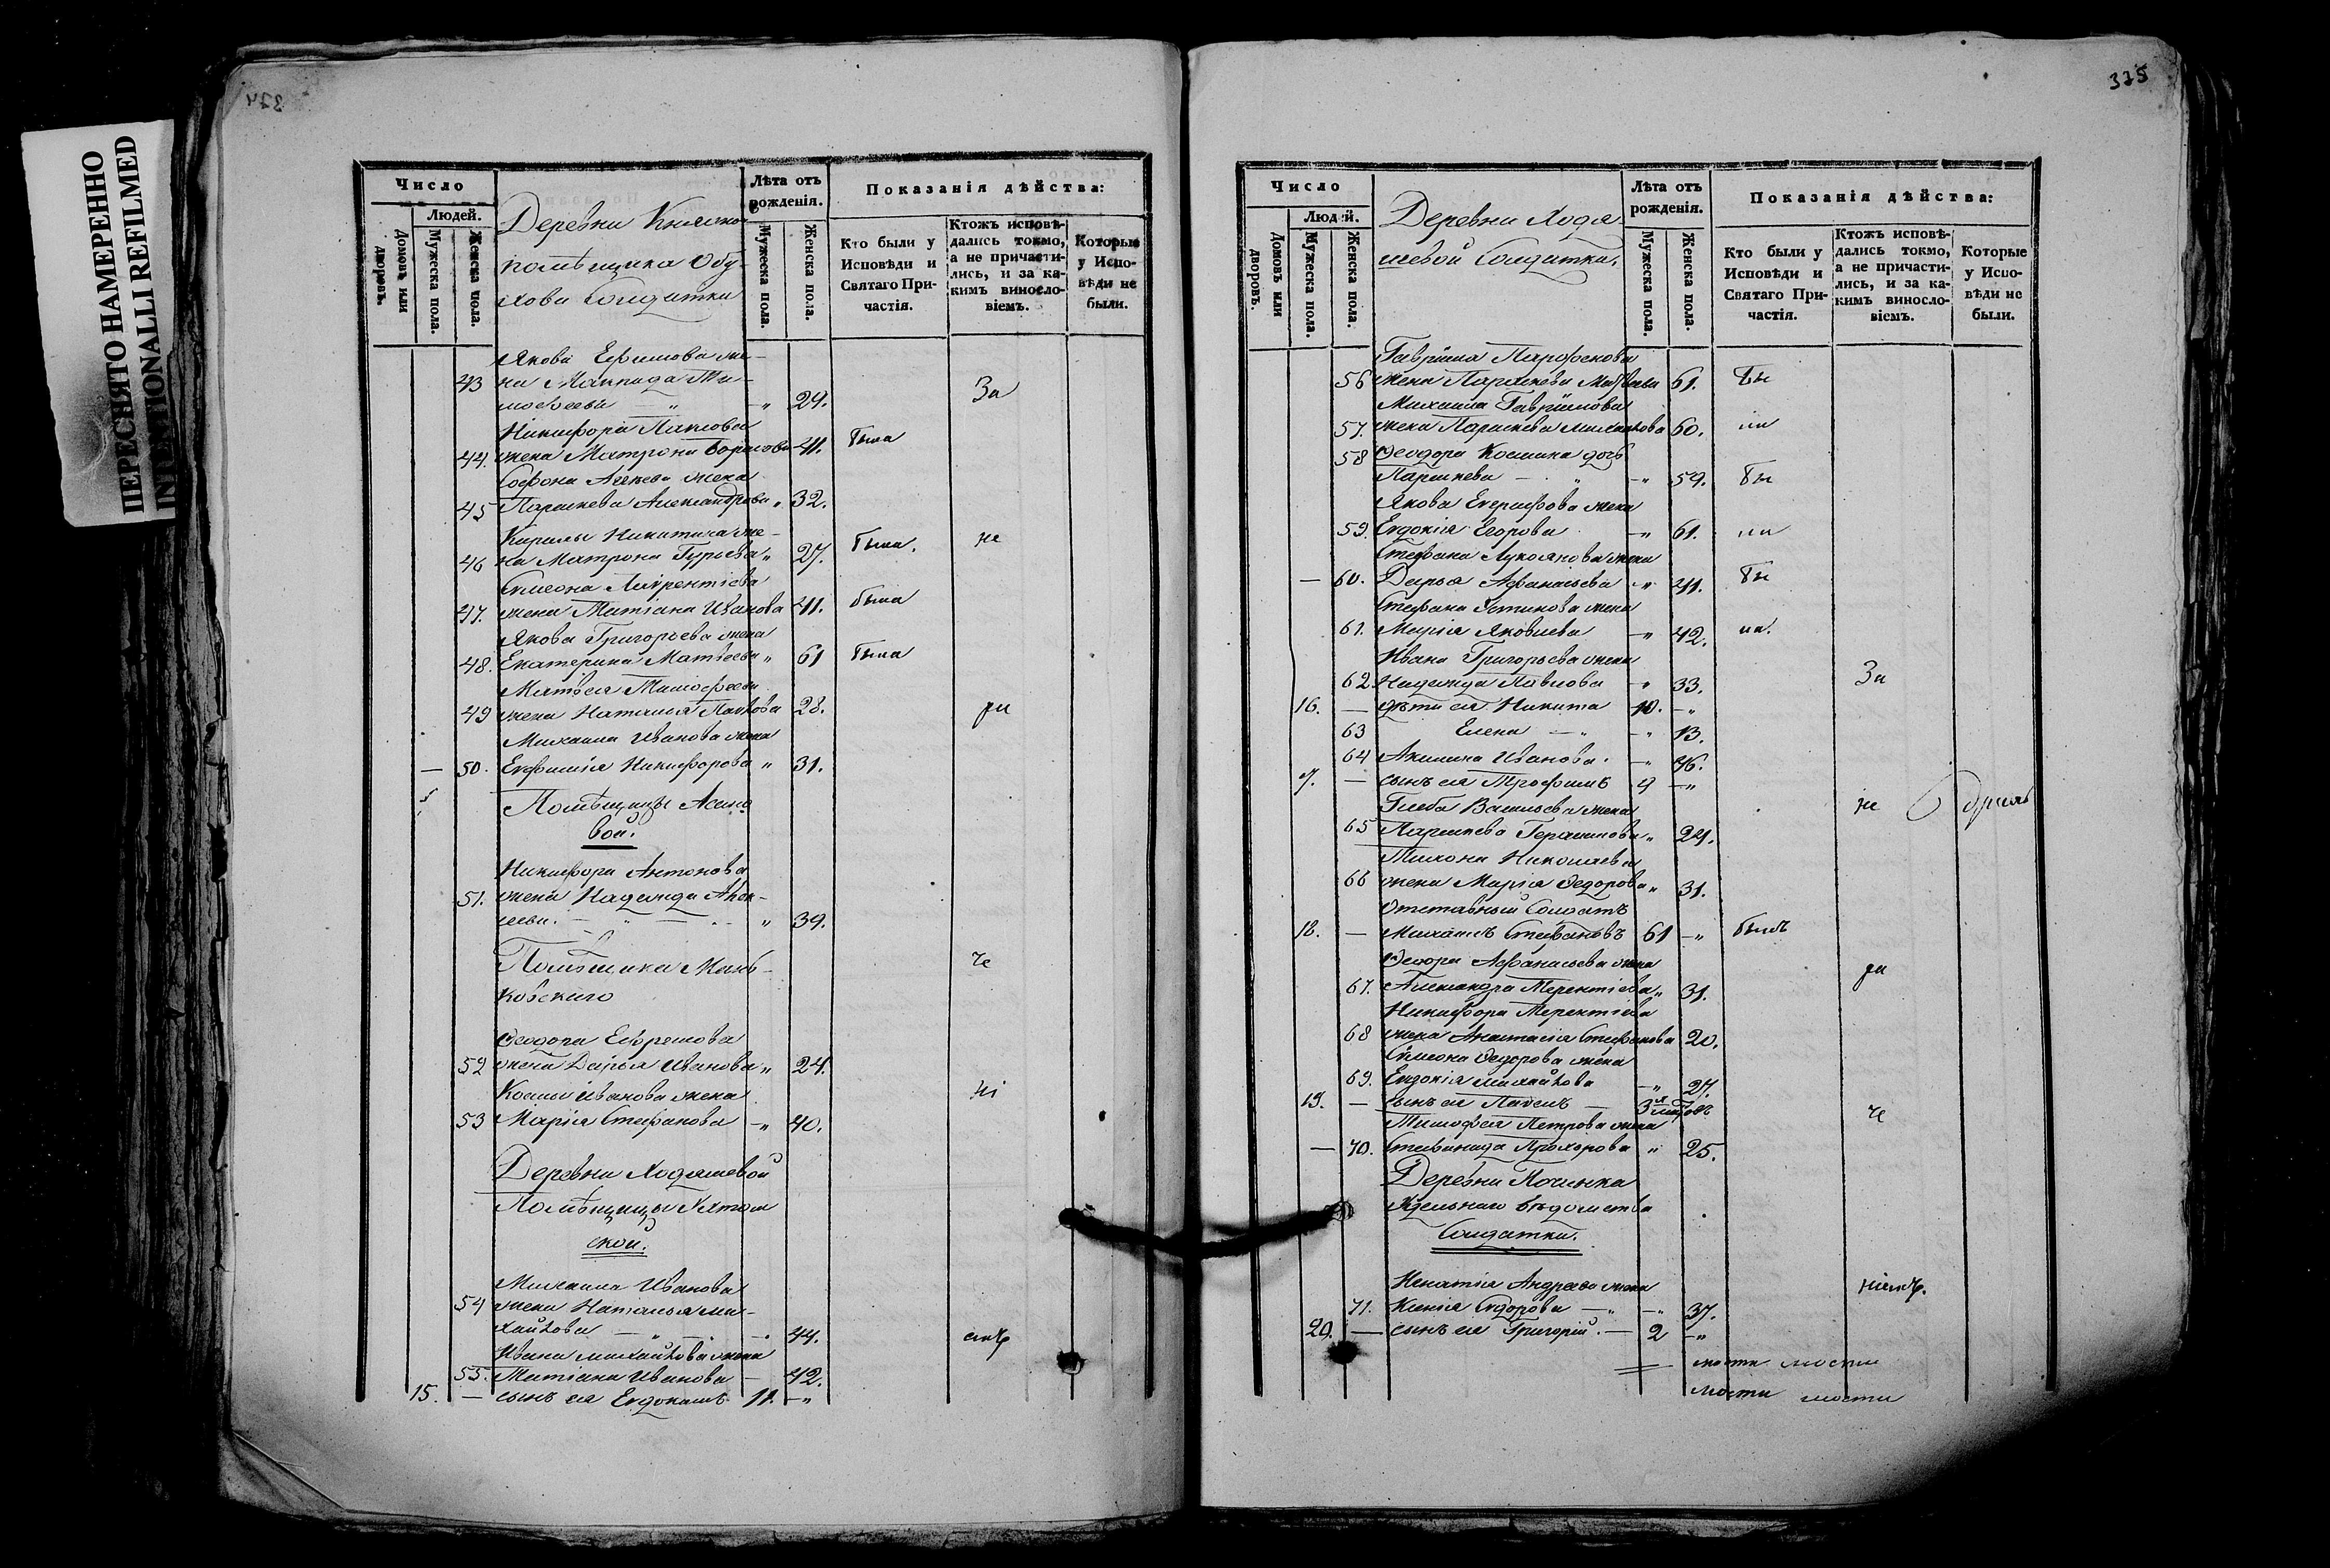 ПЕРЕСНЯТО НАМЕРЕННО
INTENTIONALLI REFILMED
374
Число
Людей.
Домовъ или дворовъ.
Мужеска пола.
Женска пола.
Деревни
помѣщика Обу-
хова Солдатки
Лѣта отъ рожденія.
Мужеска пола.
Женска пола.
Показанія дѣйства:
Кто были у Исповѣди и Святаго Причастія.
Ктожъ исповѣдались токмо, а не причастились, и за какимъ винословіемъ.
Которые у Исповѣди не были.
Якова Ефимова же-
43 на Ти-
мофеева " " 29. За
Никифора Павлова
44. жена Матрона Борисова 41. была
Софона жена
45 Параскева Александрова " 32.
Кирилы Никитина же-
46 на Матрона Гурьева " 27. была. не
Симеона Лаврентіева
47. жена Татіана Иванова 41. была
Якова Григорьева жена
48. Екатерина Матвеева " 61 была
Матвея Тимофеева
49 жена Наталья Павлова 28. ра
Михаила Иванова жена
— 50. Евфимія Никифорова " 31.
Помѣщицы
вой.
Никифора Антонова
51. жена Надежда
" 39.
Помѣщика че
ковскаго
Феодора Ефремова
52 жена Дарья Иванова " 24.
Космы Иванова жена ні
53 Марія Стефанова — " 40.
Деревни Ходяшевой
Помѣщицы
ской.
Михаила Иванова
54 жена Наталья Ми-
хайлова — " 44. емъ
Ивана Михайлова жена
55. Татіана Иванова — 42.
15. — сынъ ея Евдокимъ 11. — "
375
Число
Людей.
Домовъ или дворовъ.
Мужеска пола.
Женска пола.
Деревни Ходя-
шевой Солдатки.
Лѣта отъ рожденія.
Мужеска пола.
Женска пола.
Показанія дѣйства:
Кто были у Исповѣди и Святаго Причастія.
Ктожъ исповѣдались токмо, а не причастились, и за какимъ винословіемъ.
Которые у Исповѣди не были.
Гавріила Парфенова
56 жена Параскева Матвеева 61. Бы
Михаила Гавріилова
57. жена Параскева Михайлова 60. ли
58 Феодора Космина дочь
Параскева — " — " 59. Бы
Якова жена
59. Евдокія Егорова — " 61. ли
Стефана Лукоянова жена
— 60. Дарья Афанасьева " 41. Бы
Стефана Устинова жена
61. Марія Яковлева — " 42. ли.
Ивана Григорьева жена
62. Надежда Павлова — " 33. За
16. — дѣти ея Никита 10. — "
63 Елена — " — " 13.
64 Акилина Иванова. — " 46.
17. — сынъ ея Трофимъ 9 — "
Глеба Васильева жена не
65 Параскева Герасимова " 24.
Тихона Николаева
66 жена Марія Федорова " 31.
Отставный Солдатъ
18. — Михаилъ Стефановъ 61 — " былъ
Феодора Афанасьева жена ра
67. Александра Терентіева " 31.
Никифора Терентіева
68 жена Анастасія Стефанова 20.
Симеона Федорова жена
69. Евдокія Михайлова — " 27.
19. — сынъ ея Павелъ — че
Тимофея Петрова жена
— 70. Стефанида Прохорова " 25.
Деревни Починка
Удельнаго вѣдомства
Солдатки.
Игнатія Андреева жена ніемъ.
71. Ксенія — " — " 37.
20. — сынъ ея Григорій. — 2 — "